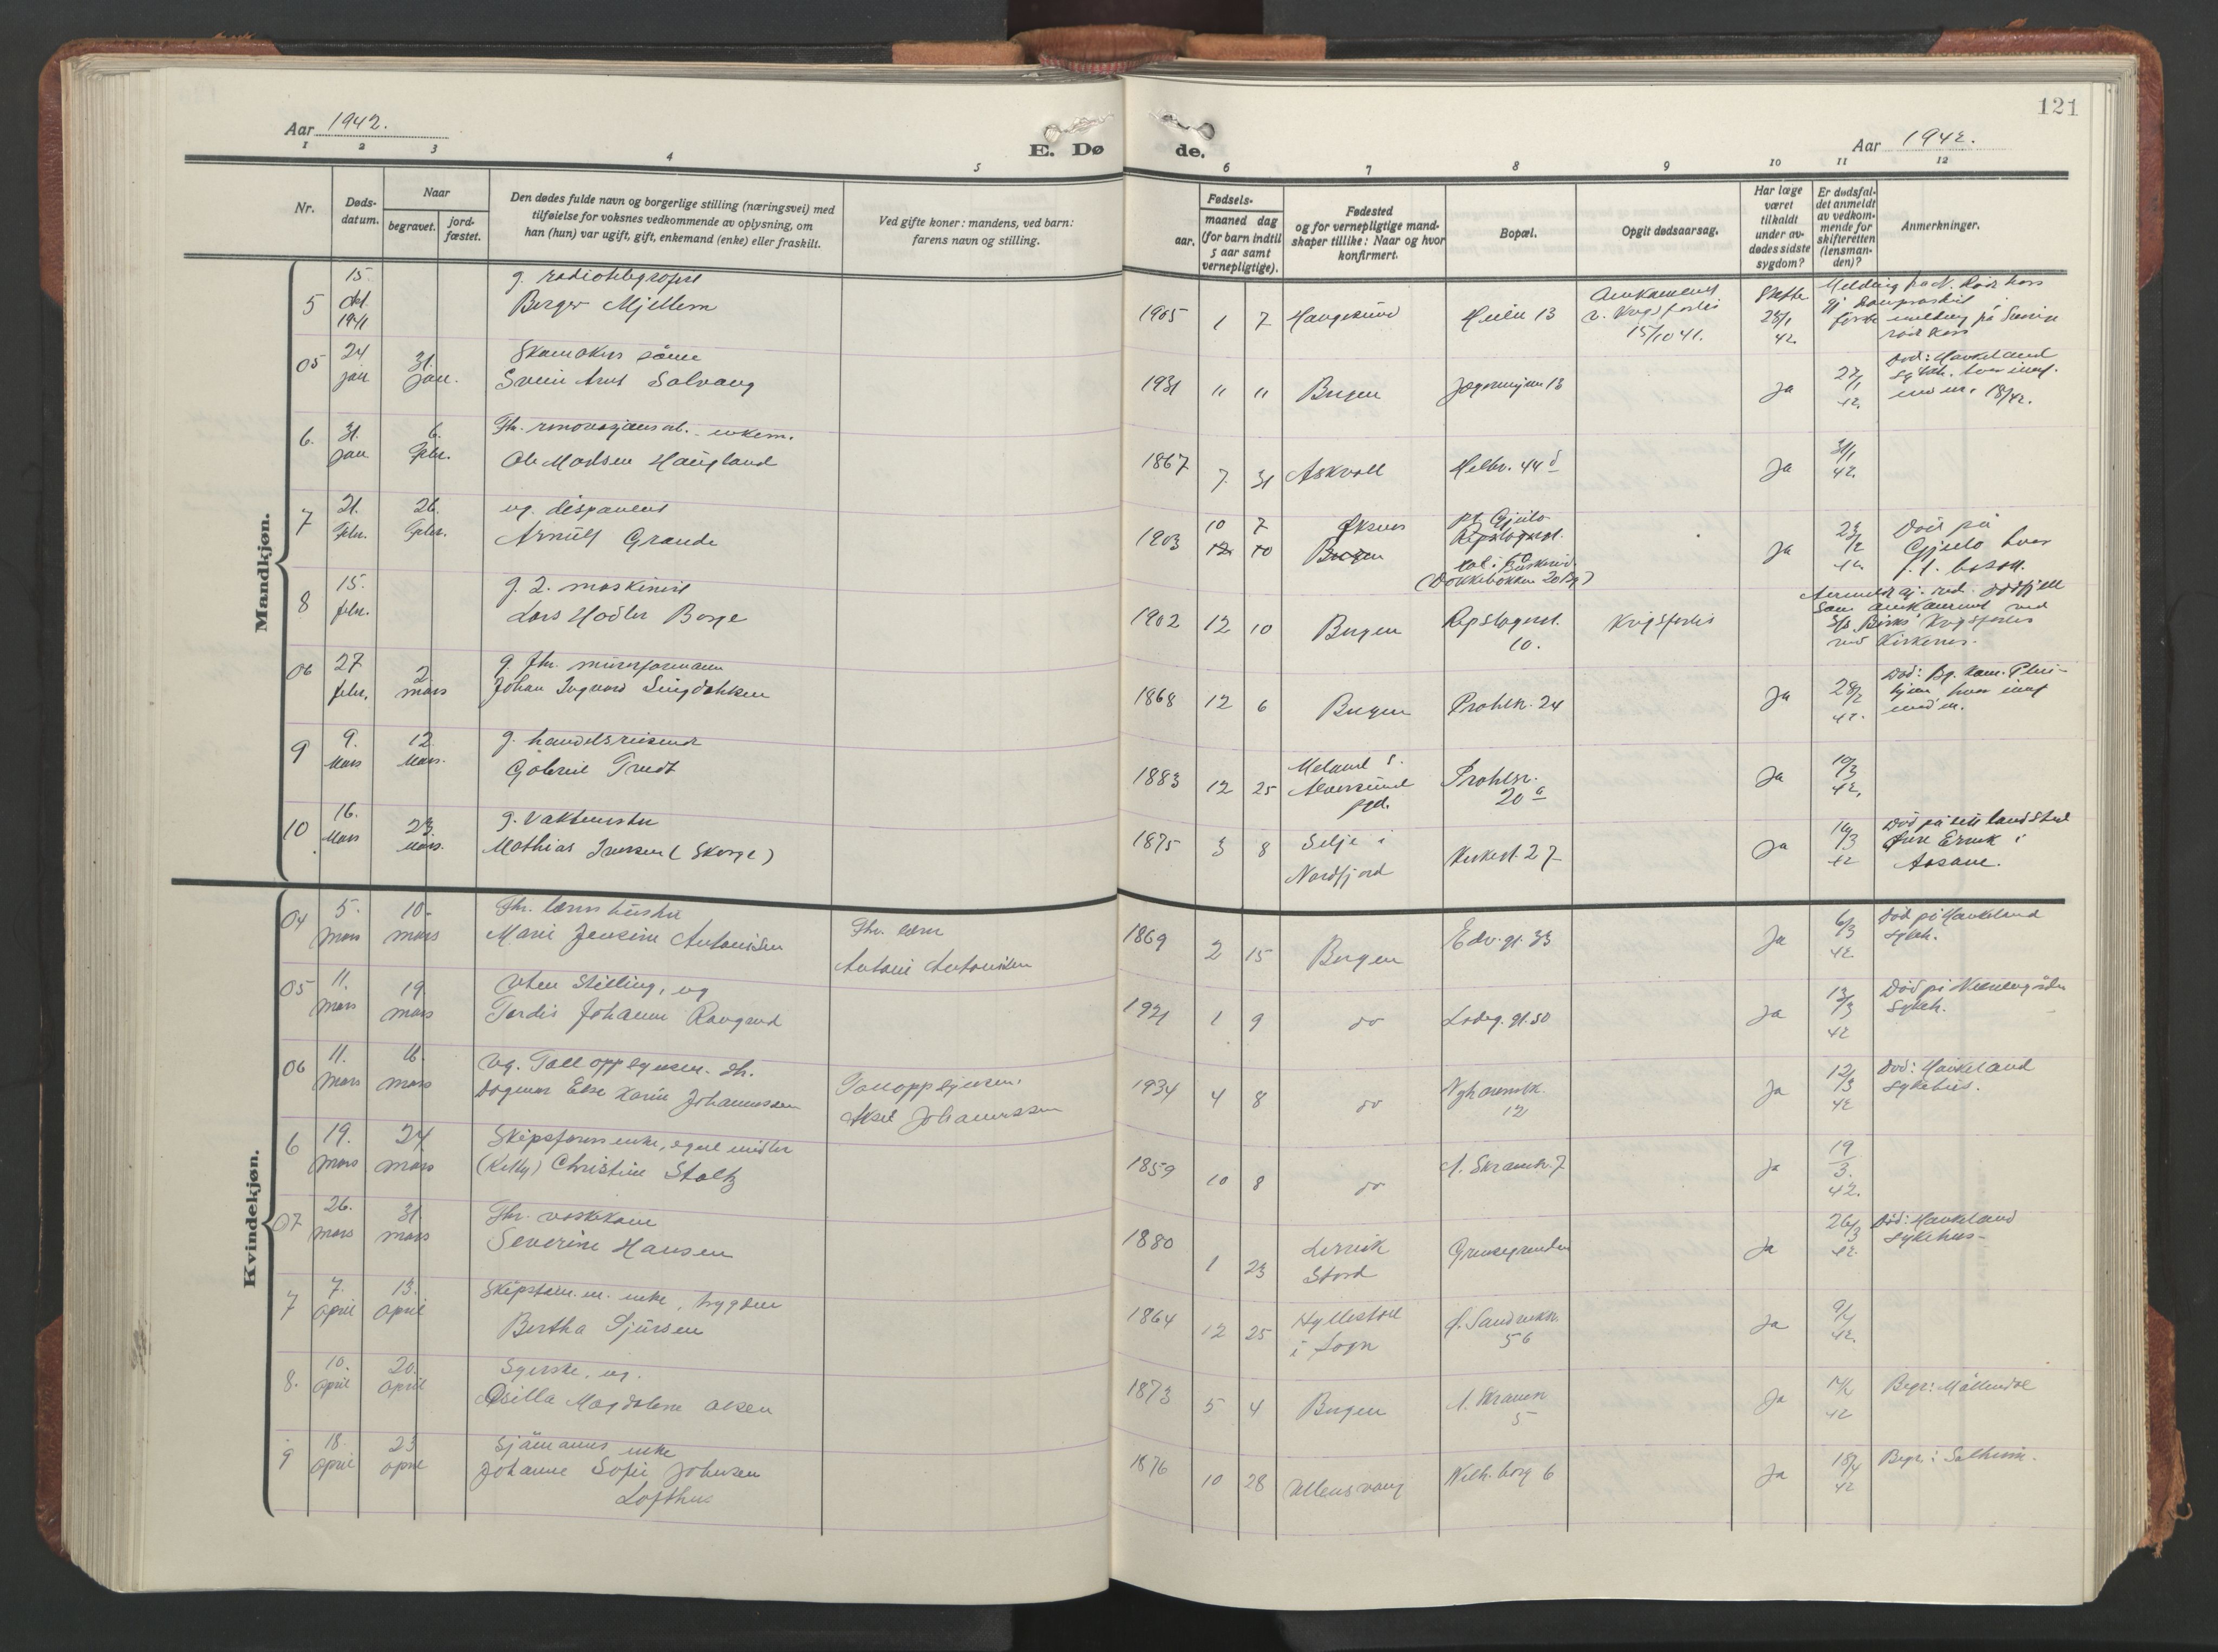 121
Aar 1942.
E. Dø de.
Aar 1942.
1 2 3 4 5 6 7 8 9 10 11 12
Nr.
Døds-
datum.
Naar
begravet.
jord-
fæstet.
Den dødes fulde navn og borgerlige stilling (næringsvei) med
tilføielse for voksnes vedkommende av oplysning, om
han (hun) var ugift, gift, enkemand (enke) eller fraskilt.
Ved gifte koner: mandens, ved barn:
farens navn og stilling.
Fødsels-
aar.
maaned dag
(for barn indtil
5 aar samt
vernepligtige).
Fødested
og for vernepligtige mand-
skaper tillike: Naar og hvor
konfirmert.
Bopæl.
Opgit dødsaarsag.
Har læge
været
tilkaldt
under av-
dødes sidste
sygdom?
Er dødsfal-
det anmeldt
av vedkom-
mende for
skifteretten
(lensman-
den)?
Anmerkninger.
Mandkjøn.
15.
5 okt. 1941
g. radiotelegrafist
Berger Mjellem
1905 1 7 Haugesund 13
Omkommet
v. Krigsforlis
15/10 41.
Skifte 28/1 42.
05 24 jan 31. jan.
Skomakers sønn
Svein Arne Solvang
1931 " " Bergen 13 Ja 27/1 42.
Død: Haukeland
6. 31. jan 6. Febr.
Fhv. renovasjonsarb. enkem.
Ole Madsen Haugland
1867 7 31 Askvoll 44 d Ja 31/1 42.
7 21. Febr. 26. Febr.
ug. disponent
Arnulf Grande
1903 10 7
12 10 Bergen
(Dokkebakken 20 Bg)
Ja 23/2 42
Død på
Gjeilo hvor
8 15. febr.
g. 2. maskinist
Lars Hadler Borge
1902 12 10 Bergen Repslagerst.
10.
Krigsforlis
som omkommet ved
Krigsforlis
ved Kirkenes.
06 27. febr. 2 mars
g. fhv. murerformann
Johan Ingvard Lingdahlsen
1868 12 6 Bergen Prahlstr. 24 Ja 28/2 42.
Død: Bg. Kom. Pleie-
hjem, hvor innf.
med nr.
9 9. Mars 12 Mars.
g. handelsreisende
Gabriel Trudt
1883 12 25 Meland s.
Alversund
pgd.
Prahlstr.
20 a
Ja 10/3 42.
10 16. Mars 23. Mars.
g. vaktmester
Mathias Iversen (Skorge)
1875 3 8 Selje i
Nordfjord
Kirkest. 27
Ja 16/3 42
Død på sitt landsted
i
Aasane.
Kvindekjøn.
04 5. mars 10. mars
Marie Jensine Antonisen
Antoni Antonisen
1869 2 15 Bergen Edv. gt. 33 Ja 6/3 42.
Død på Haukeland
sykeh.
05 11. mars 19. mars
Uten stilling, ug
Tordis Johanne
1921 1 9 do 50 Ja 13/3 42
Død på
sykeh.
06 11. mars 16. mars
ug. Tolloppsynsm. dt.
Dagmar Else Karin Johannessen
Tolloppsynsm.
Aksel Johannessen
1934 4 8 do
12
Ja 12/3 42
Død: Haukeland
sykehus.
6 19. mars 24 mars
Skipsførers enke, egne midler
(Kitty) Christine Stoltz
1859 10 8 do A. Skramstr. 7 Ja 19/3. 42.
07 26. mars 31. mars
Fhv. vaskekone
Severine Hansen
1880 1 23 Lervik
Stord
Grensegrenden Ja 26/3 42.
Død: Haukeland
sykehus-
7 7. april 13. april
enke, trygden
Bertha Sjursen
1864 12 25 Hyllestad
i Sogn
Ø. Sandvikstr.
56
Ja 9/4 42.
8. 10. april 20. april
Syerske, ug.
Magdalene Olsen
1873 5 4 Bergen A. Skramstr.
5
Ja 42
Begr: Møllendal
9 18. april 23 april
Sjømanns enke
Johanne Sofie Johnsen
Lofthus
1876 10 28 Ullensvang Wilh. borg 6 Ja 18/4 42
Begr: Solheim.